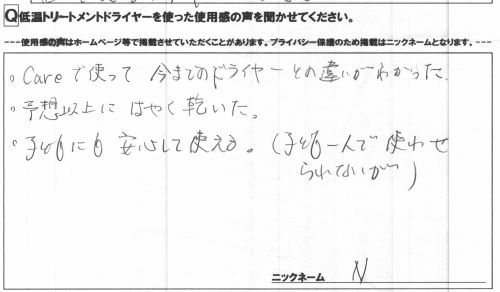 Q低温トリートメントドライヤーを使った使用感の声を聞かせてください。
---使用感の声はホームページ等で掲載させていただくことがあります。プライバシー保護のため掲載はニックネームとなります。---
。Careで使って 今までのドライヤーとの違いがわかった。
。予想以上に はやく乾いた。
。子供にも 安心して使える。(子供一人で使わせ
られないが)
ニックネーム N